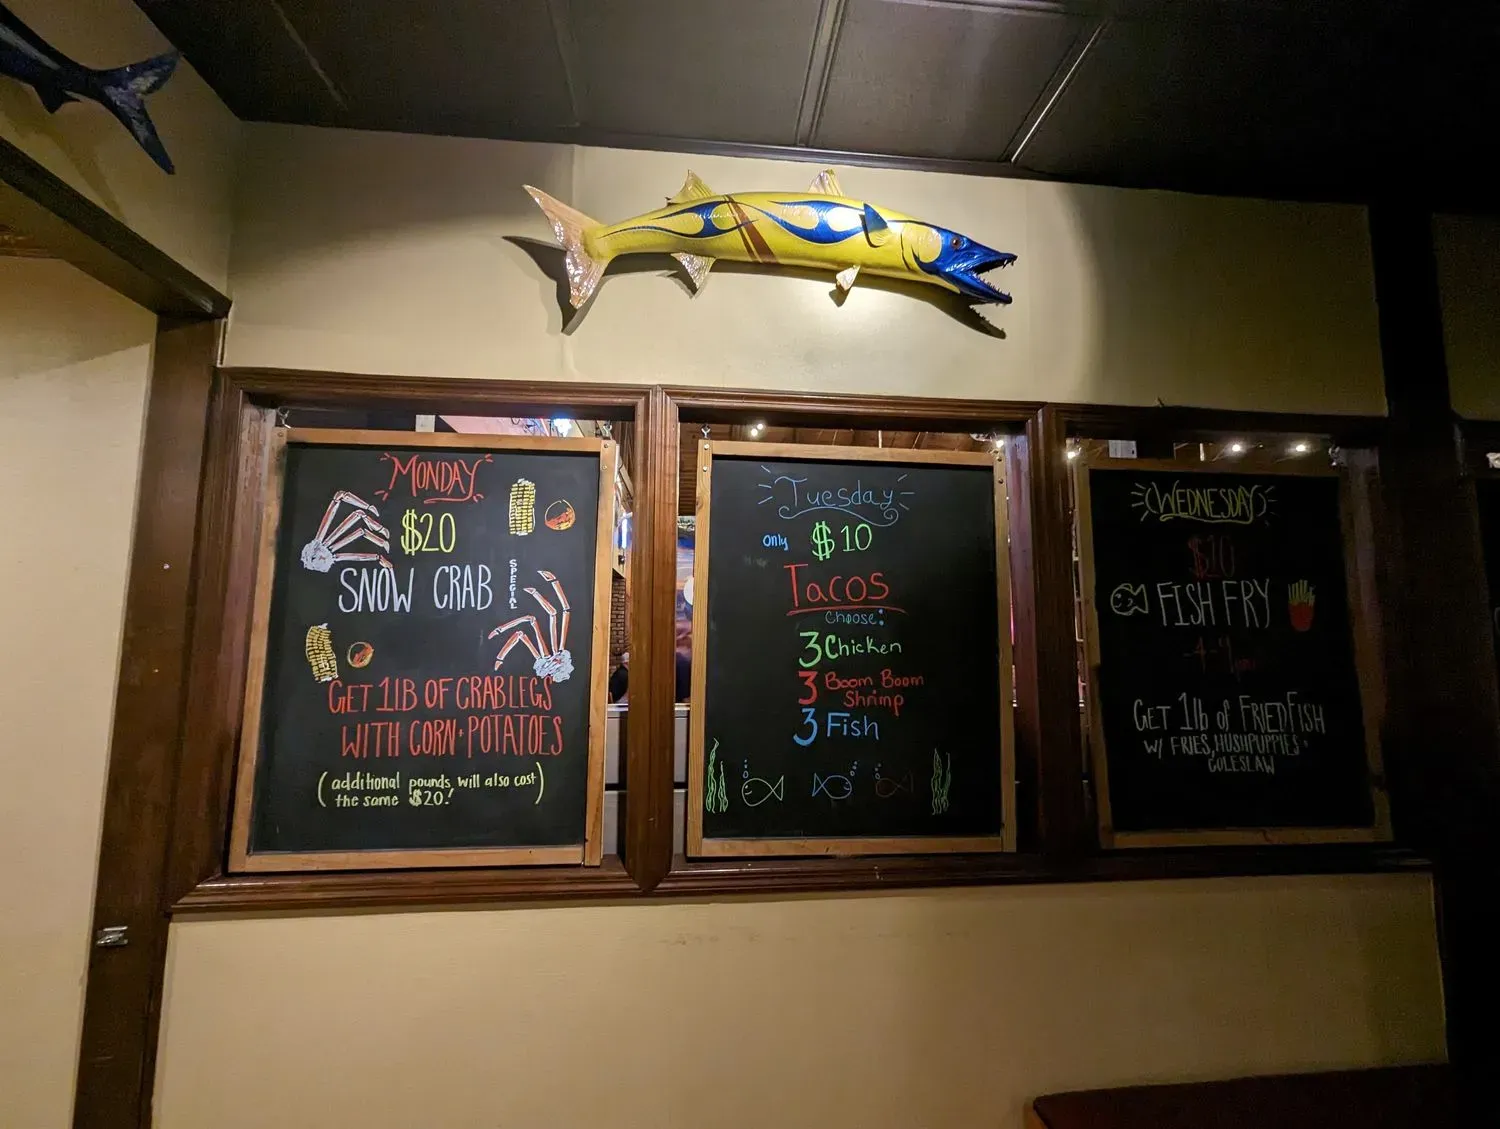 MONDAY
$20
SNOW CRAB
SPECIAL
GET 1lB OF CRAB LEGS
WITH CORN + POTATOES
(additional pounds will also cost
the same $20!)
Tuesday
only $10
TACOS
Choose:
3 Chicken
3 Boom Boom
Shrimp
3 Fish
WEDNESDAY
$10
FISH FRY
4-9pm
GET 1lb of FRIED FISH
W/ FRIES, HUSHPUPPIES +
COLESLAW